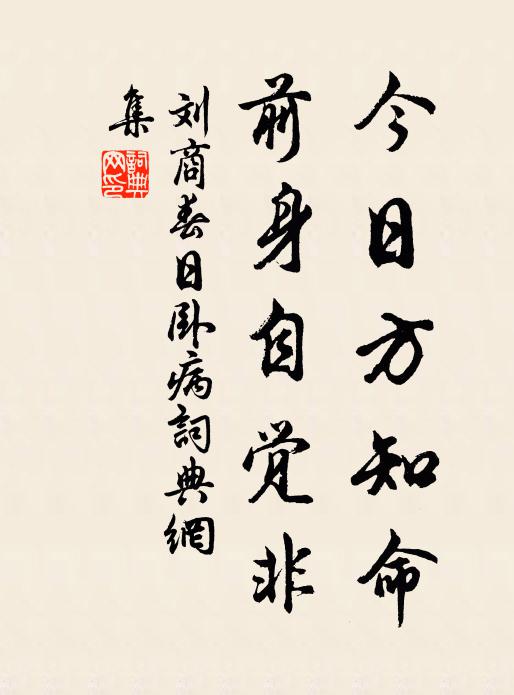 今日方知命
前身自觉非
刘商春日卧病詞典網
集
詞典
网印